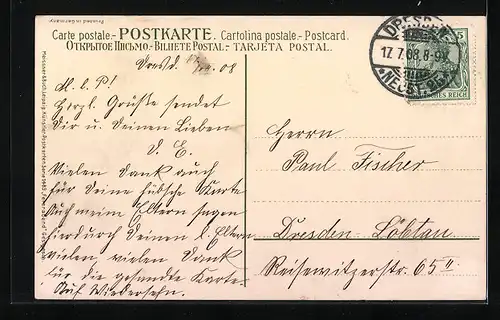 Printed in Germany
Carte postale.-POSTKARTE. Cartolina postale.-Postcard.
ОТКРЫТОЕ ПИСЬМО.-BILHETE POSTAL.-TARJETA POSTAL.
Dresd. 17/7.08
M. l. P!
Herzl. Grüße sendet
Dir u. Deinen Lieben
D. E.
Vielen Dank auch
für Deine hübsche Karte
Auch meine Eltern sagen
hierdurch Deinen l. Eltern
vielen, vielen Dank
für die gesandte Karte
Auf Wiedersehn.
DRESDEN
17.7.08.8-9V.
*NEUST
5
DEUTSCHES REICH
Herrn
Paul Fischer
Dresden-Löbtau
Reisewitzerstr. 65 II